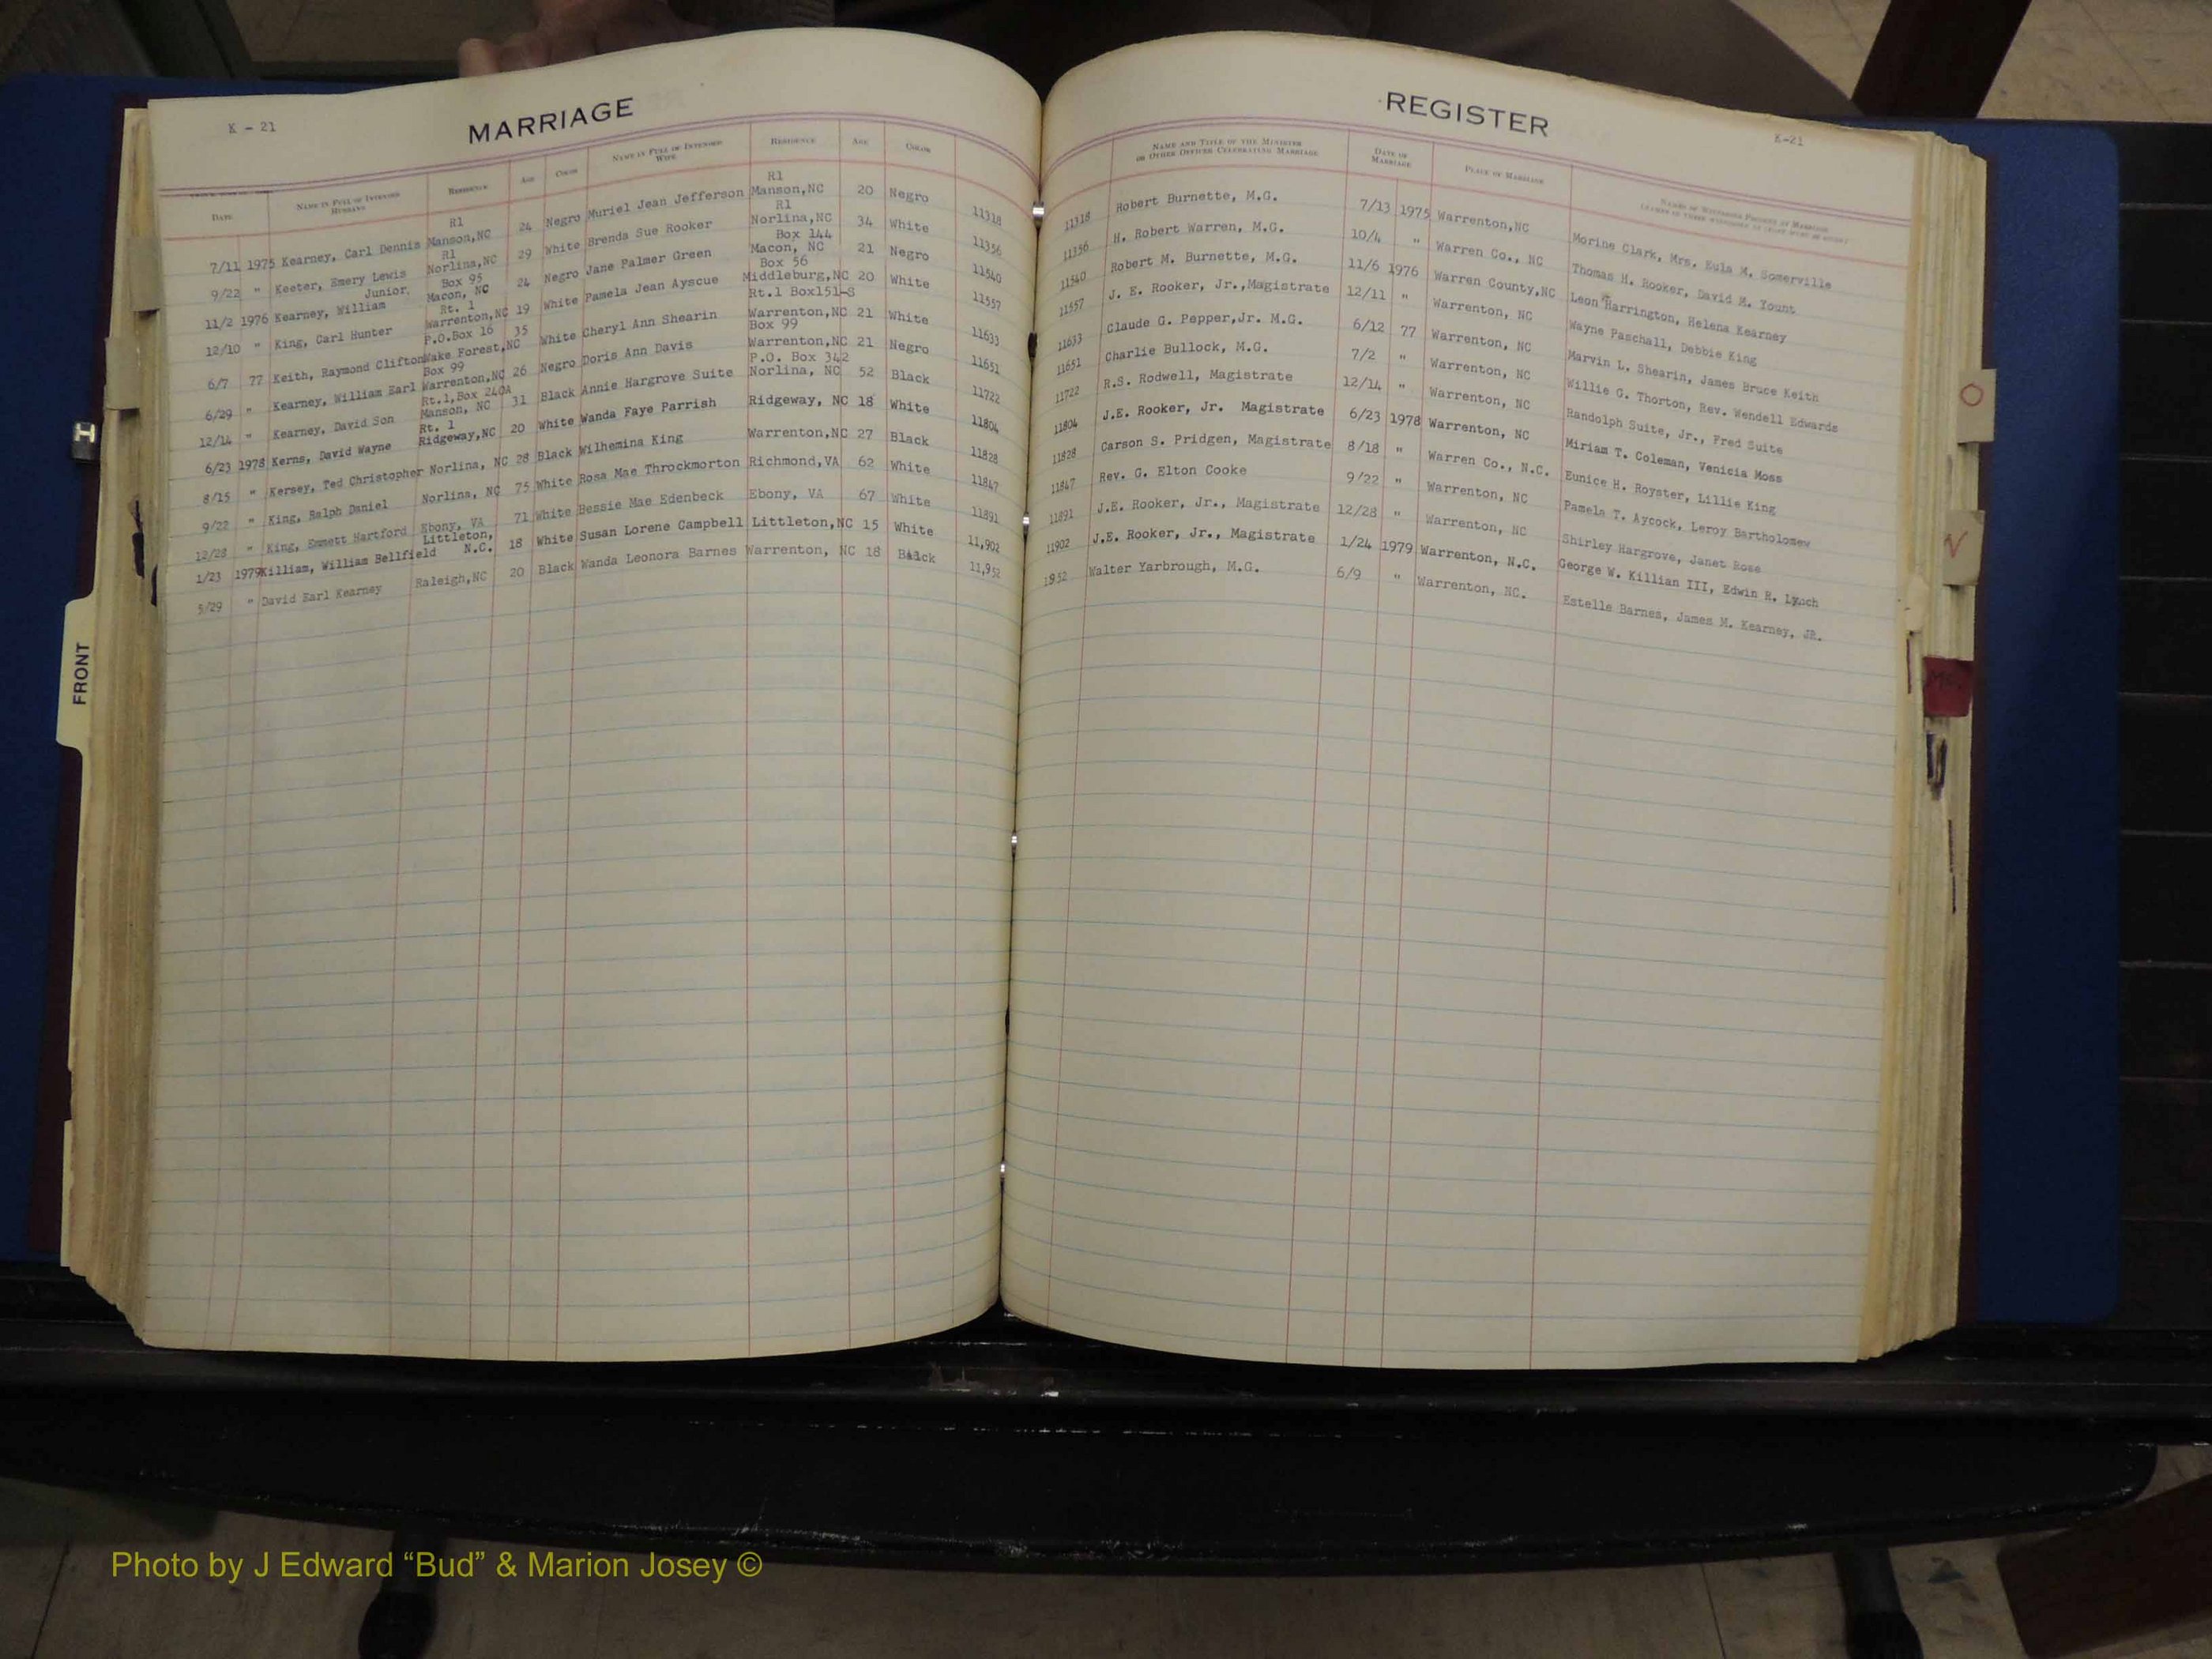 K - 21
MARRIAGE
DATE NAME IN FULL OF INTENDED HUSBAND RESIDENCE AGE COLOR NAME IN FULL OF INTENDED WIFE RESIDENCE AGE COLOR
7/11 1975 Kearney, Carl Dennis R1 Manson,NC 24 Negro Muriel Jean Jefferson R1 Manson,NC 20 Negro 11318
9/22 " Keeter, Emery Lewis R1 Norlina,NC 29 White Brenda Sue Rooker R1 Norlina,NC 34 White 11356
11/2 1976 Kearney, William Junior, Box 95 Macon, NC 24 Negro Jane Palmer Green Box 144 Macon, NC 21 Negro 11540
12/10 " King, Carl Hunter Rt. 1 Warrenton,NC 19 White Pamela Jean Ayscue Box 56 Middleburg,NC 20 White 11557
6/7 77 Keith, Raymond Clifton P.O.Box 16 Wake Forest,NC 35 White Cheryl Ann Shearin Rt.1 Box151-S Warrenton,NC 21 White 11633
6/29 " Kearney, William Earl Box 99 Warrenton,NC 26 Negro Doris Ann Davis Box 99 Warrenton,NC 21 Negro 11651
12/14 " Kearney, David Son Rt.1,Box 240A Manson, NC 31 Black Annie Hargrove Suite P.O. Box 342 Norlina, NC 52 Black 11722
6/23 1978 Kerns, David Wayne Rt. 1 Ridgeway,NC 20 White Wanda Faye Parrish Ridgeway, NC 18 White 11804
8/15 " Kersey, Ted Christopher Norlina, NC 28 Black Wilhemina King Warrenton,NC 27 Black 11828
9/22 " King, Ralph Daniel Norlina, NC 75 White Rosa Mae Throckmorton Richmond,VA 62 White 11847
12/28 " King, Emmett Hartford Ebony, VA 71 White Bessie Mae Edenbeck Ebony, VA 67 White 11891
1/23 1979 Killiam, William Bellfield Littleton, N.C. 18 White Susan Lorene Campbell Littleton,NC 15 White 11,902
5/29 " David Earl Kearney Raleigh,NC 20 Black Wanda Leonora Barnes Warrenton, NC 18 Black 11,952
REGISTER
K-21
NAME AND TITLE OF THE MINISTER OR OTHER OFFICER CELEBRATING MARRIAGE DATE OF MARRIAGE PLACE OF MARRIAGE NAMES OF WITNESSES PRESENT AT MARRIAGE
11318 Robert Burnette, M.G. 7/13 1975 Warrenton,NC Morine Clark, Mrs. Eula M. Somerville
11356 H. Robert Warren, M.G. 10/4 " Warren Co., NC Thomas H. Rooker, David M. Yount
11540 Robert M. Burnette, M.G. 11/6 1976 Warren County,NC Leon Harrington, Helena Kearney
11557 J. E. Rooker, Jr.,Magistrate 12/11 " Warrenton, NC Wayne Paschall, Debbie King
11633 Claude G. Pepper,Jr. M.G. 6/12 77 Warrenton, NC Marvin L. Shearin, James Bruce Keith
11651 Charlie Bullock, M.G. 7/2 " Warrenton, NC Willie G. Thorton, Rev. Wendell Edwards
11722 R.S. Rodwell, Magistrate 12/14 " Warrenton, NC Randolph Suite, Jr., Fred Suite
11804 J.E. Rooker, Jr. Magistrate 6/23 1978 Warrenton, NC Miriam T. Coleman, Venicia Moss
11828 Carson S. Pridgen, Magistrate 8/18 " Warren Co., N.C. Eunice H. Royster, Lillie King
11847 Rev. G. Elton Cooke 9/22 " Warrenton, NC Pamela T. Aycock, Leroy Bartholomew
11891 J.E. Rooker, Jr., Magistrate 12/28 " Warrenton, NC Shirley Hargrove, Janet Rose
11902 J.E. Rooker, Jr., Magistrate 1/24 1979 Warrenton, N.C. George W. Killian III, Edwin R. Lynch
1952 Walter Yarbrough, M.G. 6/9 " Warrenton, NC. Estelle Barnes, James M. Kearney, JR.
FRONT
O
N
Mc
Photo by J Edward “Bud” & Marion Josey ©